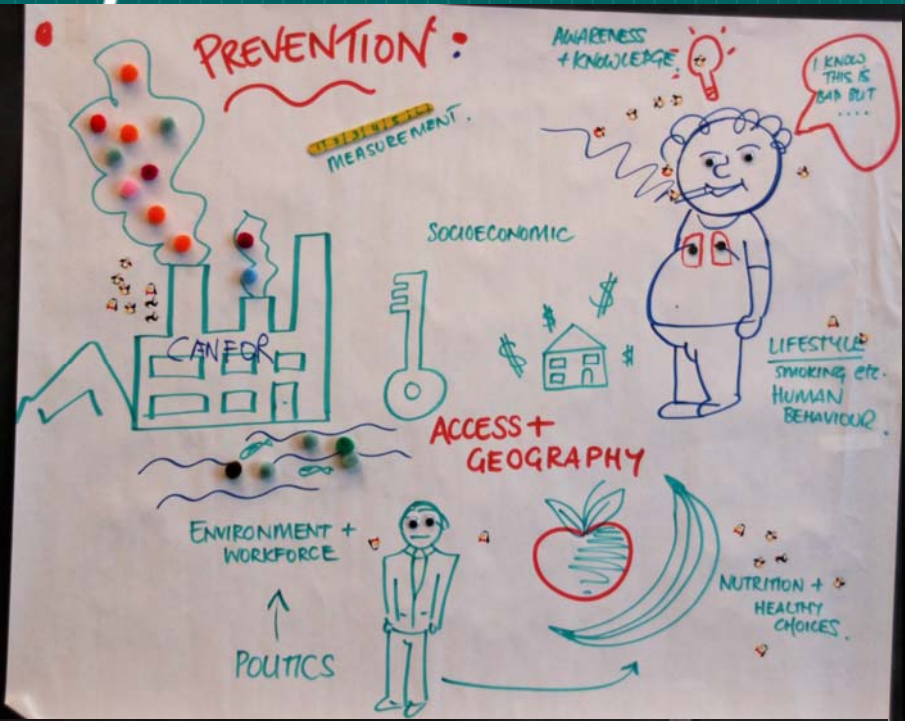 PREVENTION:
AWARENESS
+ KNOWLEDGE
I KNOW
THIS IS
BAD BUT
....
MEASUREMENT.
SOCIOECONOMIC
CANFOR
$ $ $ $
LIFESTYLE
SMOKING etc.
HUMAN
BEHAVIOUR.
ACCESS +
GEOGRAPHY
ENVIRONMENT +
WORKFORCE
NUTRITION +
HEALTHY
CHOICES.
POLITICS